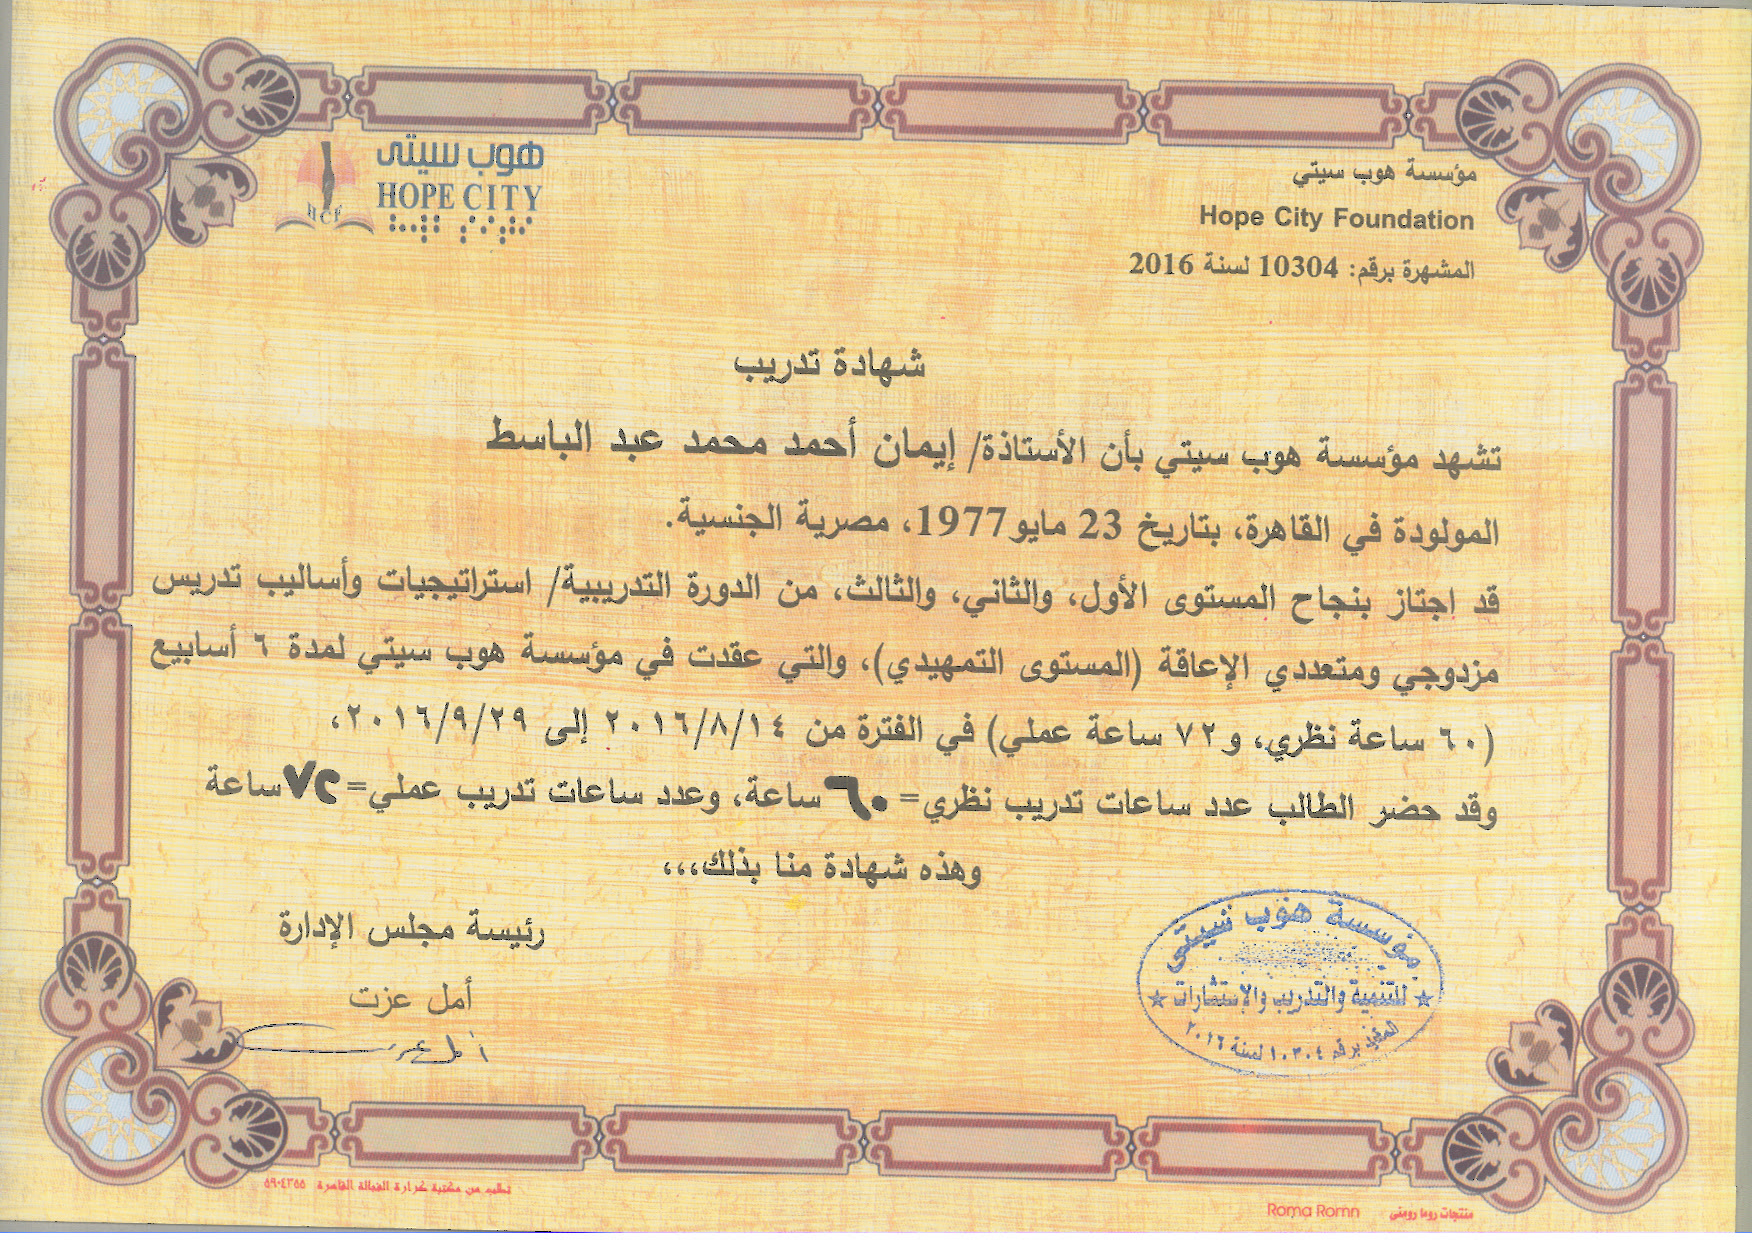 هوب سيتى
HOPE CITY
HCF
مؤسسة هوب سيتي
Hope City Foundation
المشهرة برقم: 10304 لسنة 2016
شهادة تدريب
تشهد مؤسسة هوب سيتي بأن الأستاذة/ إيمان أحمد محمد عبد الباسط
المولودة في القاهرة، بتاريخ 23 مايو1977، مصرية الجنسية.
قد اجتاز بنجاح المستوى الأول، والثاني، والثالث، من الدورة التدريبية/ استراتيجيات وأساليب تدريس
مزدوجي ومتعددي الإعاقة (المستوى التمهيدي)، والتي عقدت في مؤسسة هوب سيتي لمدة ٦ أسابيع
(٦٠ ساعة نظري، و٧٢ ساعة عملي) في الفترة من ٢٠١٦/٨/١٤ إلى ٢٠١٦/٩/٢٩،
وقد حضر الطالب عدد ساعات تدريب نظري= ٦٠ ساعة، وعدد ساعات تدريب عملي=٧٢ساعة
وهذه شهادة منا بذلك،،،
رئيسة مجلس الإدارة
أمل عزت
أمل عزت
مؤسسة هوب سيتى
للتنمية والتدريب والإستشارات
برقم ١٠٣٠٤ لسنة ٢٠١٦
تطلب من مكتبة كرارة الفجالة القاهرة ٥٩٠٤٣٥٥
Roma Romn
منتجات روما رومنى